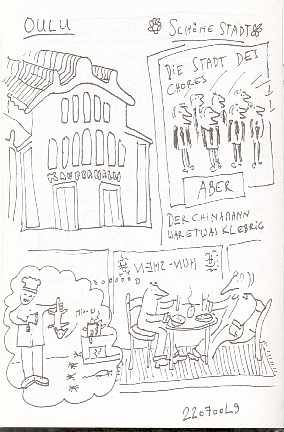 OULU
SCHÖNE STADT
DIE STADT DES
CHORES
KAUPPAHALLI
ABER
DER CHINAMANN
WAR ETWAS KLEBRIG
HUN-SHEN
220700L9